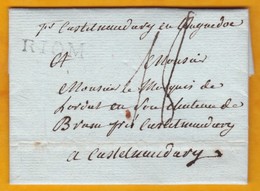 pr Castelnaudary en Languedoc
RIOM
A Monsieur
Monsieur le Marquis de
en son chateau de
Bram près Castelnaudary
a Castelnaudary